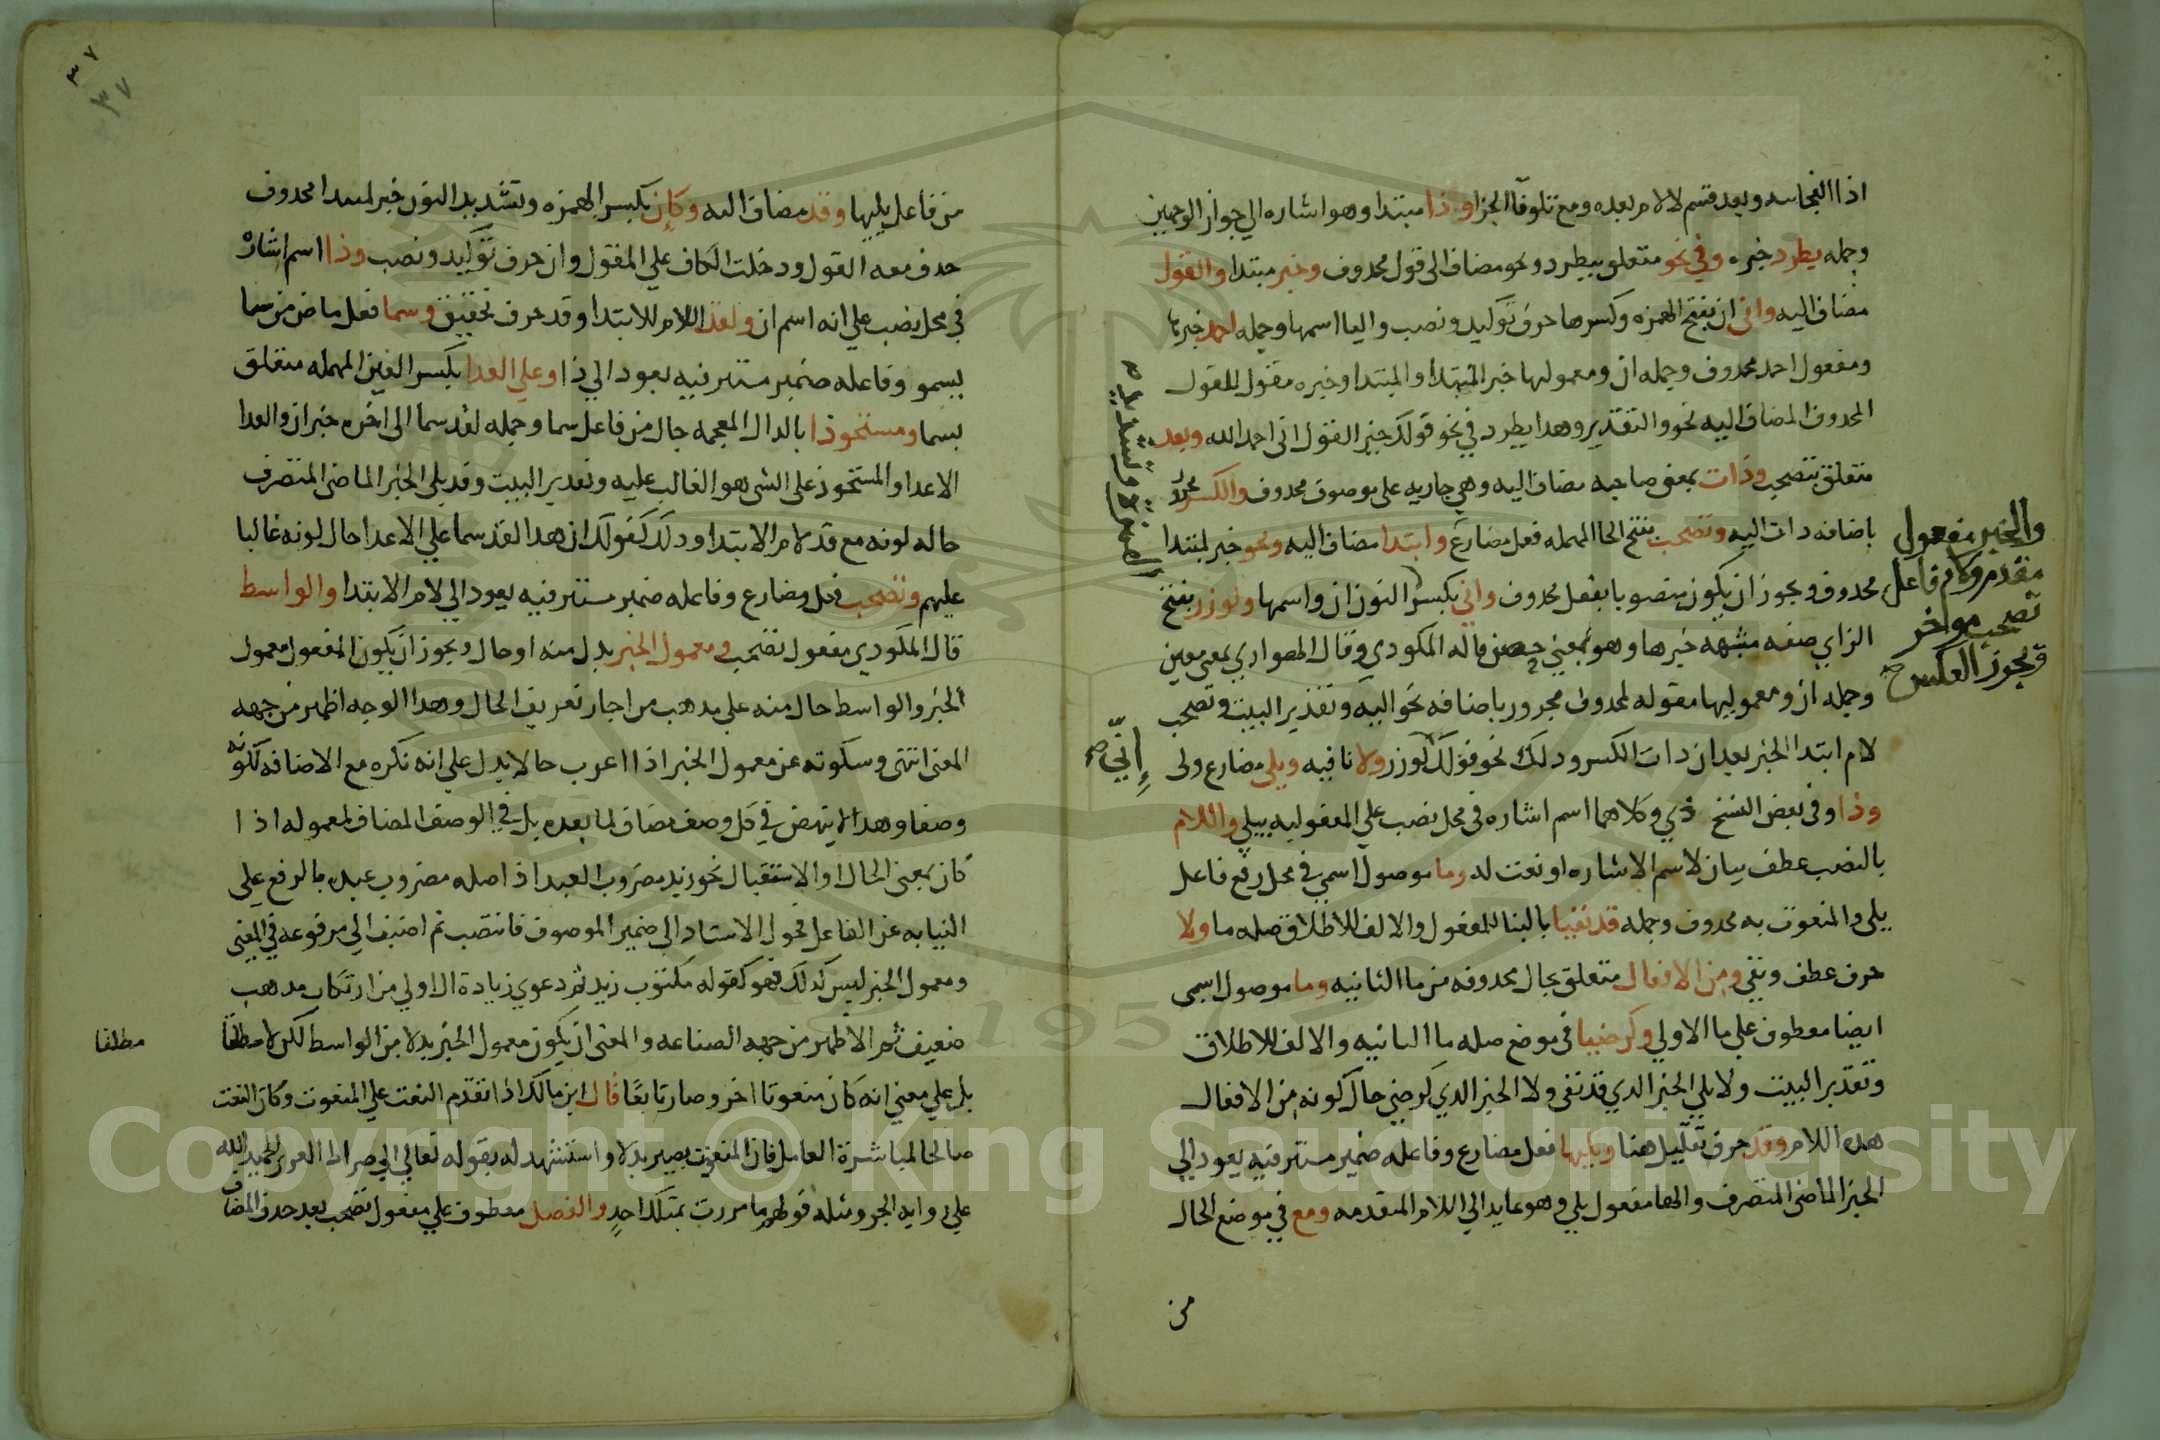 اذا الفجاىيه وبعد قسم لا لام بعده ومع تلو فا الجزا وذا مبتدا وهو اشاره الي جواز الوجهين
وجمله يطرد خبره وفي نحو متعلق بيطرد ونحو مضاف الى قول محدوف وخبر مبتدا والقول
مضاف اليه واني ان بفتح الهمزه وكسرها حرف توكيد ونصب واليا اسمها وجمله احمد خبرها
ومفعول احمد محدوف وجمله ان ومعموليها خبر المبتدا والمبتدا وخبره مقول للقول
المحدوف المضاف اليه نحو والتقدير وهدا يطرد في نحو قولك خير القول اني احمد الله وبعد
متعلق بتصحب وذات بمعنى صاحبه مضاف اليه وهي جاريه على موصوف محدوف والكسر مجرور
باضافه دات اليه وتصحب بفتح الحا المهمله فعل مضارع وابتدا مضاف اليه ونحو خبر لمبتدا
محدوف ويجوز ان يكون منصوبا بفعل محدوف واني بكسر النون ان واسمها ولوزر بفتح
الزاي صفه مشبهه خبرها وهو بمعني حصن قاله المكودي وقال الهواري بمعنى معين
وجمله ان ومعموليها مقوله لمحدوف مجرور باضافه نحو اليه وتقدير البيت وتصحب
لام ابتدا الخبر بعد ان دات الكسر ودلك نحو قولك لوزر ولا نافيه ويلي مضارع ولى
وذا وفي بعض النسخ ذي وكلاهما اسم اشاره في محل نصب علي المفعوليه بيلي واللام
بالنصب عطف بيان لاسم الاشاره او نعت له وما موصول اسمي في محل رفع فاعل
يلي والمنعوت به محدوف وجمله قد نفيا بالبنا للمفعول والالف للاطلاق صله ما ولا
حرف عطف ونفي ومن الافعال متعلق بحال محدوفه من ما الثانيه وما موصول اسمي
ايضا معطوف علي ما الاولي وكرضيا في موضع صله ما الثانيه والالف للاطلاق
وتقدير البيت ولا يلي الخبر الدي قد نفى ولا الخبر الدي كرضي حال كونه من الافعال
هده اللام وقد حرف تقليل هنا ويليها فعل مضارع وفاعله ضمير مستتر فيه يعود الي
الخبر الماضي المتصرف والها مفعول يلي وهو عايد الي اللام المتقدمه ومع في موضع الحال
من
والخبر مفعول
مقدم ولام فاعل
تصحب مواخر
ويجوز العكس صح
إنّي صح
٣٧
٣٧
من فاعل يليها وقد مضاف اليه وكان بكسر الهمزه وتشديد النون خبر لمبتدا محدوف
حدف معه القول ودخلت الكاف علي المقول وان حرف توكيد ونصب وذا اسم اشاره
في محل نصب علي انه اسم ان ولقد اللام للابتدا وقد حرف تحقيق وسما فعل ماض من سما
يسمو وفاعله ضمير مستتر فيه يعود الي ذا وعلي العدا بكسر العين المهمله متعلق
بسما ومستحوذا بالدال المعجمه حال من فاعل سما وجمله لقد سما الى اخره خبر ان والعدا
الاعدا والمستحوذ على الشي هو الغالب عليه وتقدير البيت وقد يلي الخبر الماضي المتصرف
حاله لونه مع قد لام الابتدا ودلك كقولك ان هدا لقد سما علي الاعدا حال لونه غالبا
عليهم وتصحب فعل مضارع وفاعله ضمير مستتر فيه يعود الي لام الابتدا والواسط
قال المكودي مفعول تصحب ومعمول الخبر بدل منه او حال ويجوز ان يكون المفعول معمول
الخبر والواسط حال منه علي مدهب من اجاز تعريف الحال وهدا الوجه اظهر من جهه
المعنى انتهى وسكوته عن معمول الخبر اذا اعرب حالا يدل علي انه نكره مع الاضافه لكونه
وصفا وهدا لا ينهض في كل وصف مضاف لما بعده بل في الوصف المضاف لمعموله اذا
كان بمعنى الحال او الاستقبال نحو زيد مضروب العبد اذ اصله مضروب عبده بالرفع علي
النيابه عن الفاعل فحول الاسناد الي ضمير الموصوف فانتصب ثم اضيف الي مرفوعه في المعنى
ومعمول الخبر ليس كدلك فهو كقوله مكتوب زيد ثم دعوي زيادة ال اولي من ارتكاب مدهب
ضعيف ثم الاظهر من جهه الصناعه والمعنى ان يكون معمول الخبر بدلا من الواسط لكن لا مطلقا
بل علي معني انه كان منعوتا اخر وصار تابعًا قال ابن مالك اذا تقدم النعت علي المنعوت وكان النعت
صالحا لمباشرة العامل فان المنعوت يصير بدلا واستشهد له بقوله تعالي الي صراط العزيز الحميد الله
علي روايه الجر ومثله قولهم ما مررت بمثلك احدٍ والفصل معطوف علي مفعول تصحب بعد حدف المضاف
مطلقا